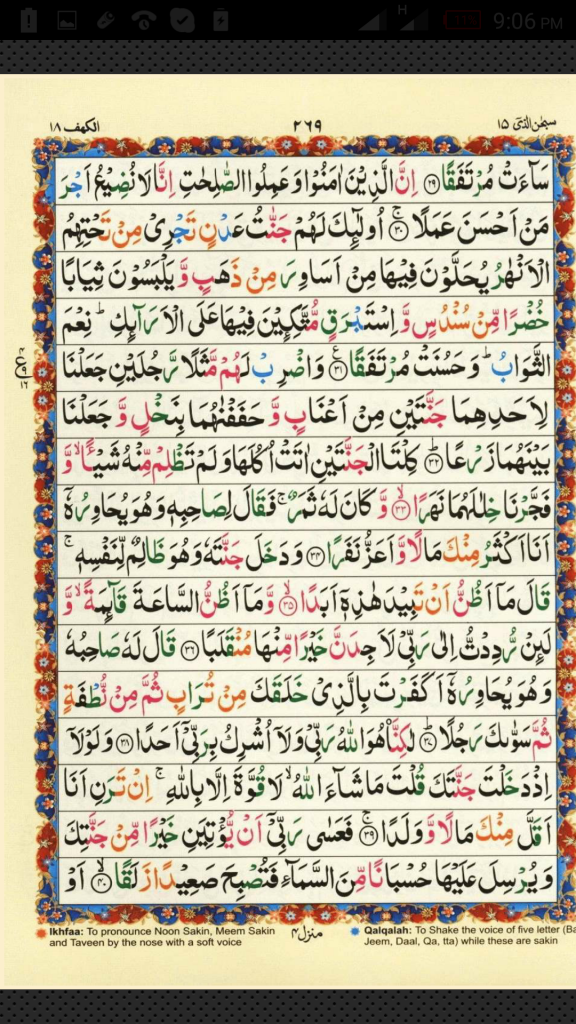 H
11%
9:06 PM
سبحن الذی ۱۵
۲۶۹
الکهف ۱۸
سَآءَتْ مُرْتَفَقًا ۲۹ اِنَّ الَّذِيْنَ اٰمَنُوْا وَعَمِلُوا الصّٰلِحٰتِ اِنَّا لَا نُضِيْعُ اَجْرَ
مَنْ اَحْسَنَ عَمَلًا ۚ ۳۰ اُولٰٓئِكَ لَهُمْ جَنّٰتُ عَدْنٍ تَجْرِىْ مِنْ تَحْتِهِمُ
الْاَنْهٰرُ يُحَلَّوْنَ فِيْهَا مِنْ اَسَاوِرَ مِنْ ذَهَبٍ وَّ يَلْبَسُوْنَ ثِيَابًا
خُضْرًا مِّنْ سُنْدُسٍ وَّ اِسْتَبْرَقٍ مُّتَّكِـِٕيْنَ فِيْهَا عَلَى الْاَرَآئِكِ ؕ نِعْمَ
الثَّوَابُ ؕ وَ حَسُنَتْ مُرْتَفَقًا ۳۱ ع وَاضْرِبْ لَهُمْ مَّثَلًا رَّجُلَيْنِ جَعَلْنَا
لِاَحَدِهِمَا جَنَّتَيْنِ مِنْ اَعْنَابٍ وَّ حَفَفْنٰهُمَا بِنَخْلٍ وَّ جَعَلْنَا
بَيْنَهُمَا زَرْعًا ؕ ۳۲ كِلْتَا الْجَنَّتَيْنِ اٰتَتْ اُكُلَهَا وَلَمْ تَظْلِمْ مِّنْهُ شَيْـًٔا ۙ وَّ
فَجَّرْنَا خِلٰلَهُمَا نَهَرًا ۙ ۳۳ وَّ كَانَ لَهٗ ثَمَرٌ ۚ فَقَالَ لِصَاحِبِهٖ وَهُوَ يُحَاوِرُهٗۤ
اَنَا اَكْثَرُ مِنْكَ مَالًا وَّ اَعَزُّ نَفَرًا ۳۴ وَ دَخَلَ جَنَّتَهٗ وَهُوَ ظَالِمٌ لِّنَفْسِهٖ ۚ
قَالَ مَاۤ اَظُنُّ اَنْ تَبِيْدَ هٰذِهٖۤ اَبَدًا ۙ ۳۵ وَّ مَاۤ اَظُنُّ السَّاعَةَ قَآئِمَةً ۙ وَّ
لَئِنْ رُّدِدْتُّ اِلٰى رَبِّىْ لَاَجِدَنَّ خَيْرًا مِّنْهَا مُنْقَلَبًا ۳۶ قَالَ لَهٗ صَاحِبُهٗ
وَ هُوَ يُحَاوِرُهٗۤ اَكَفَرْتَ بِالَّذِىْ خَلَقَكَ مِنْ تُرَابٍ ثُمَّ مِنْ نُّطْفَةٍ
ثُمَّ سَوّٰىكَ رَجُلًا ؕ ۳۷ لٰكِنَّا۟ هُوَ اللّٰهُ رَبِّىْ وَلَاۤ اُشْرِكُ بِرَبِّىْۤ اَحَدًا ۳۸ وَ لَوْلَاۤ
اِذْ دَخَلْتَ جَنَّتَكَ قُلْتَ مَا شَآءَ اللّٰهُ ۙ لَا قُوَّةَ اِلَّا بِاللّٰهِ ۚ اِنْ تَرَنِ اَنَا
اَقَلَّ مِنْكَ مَالًا وَّ وَلَدًا ۚ ۳۹ فَعَسٰى رَبِّىْۤ اَنْ يُّؤْتِيَنِ خَيْرًا مِّنْ جَنَّتِكَ
وَ يُرْسِلَ عَلَيْهَا حُسْبَانًا مِّنَ السَّمَآءِ فَتُصْبِحَ صَعِيْدًا زَلَقًا ۙ ۴۰ اَوْ
منزل ۴
Ikhfaa: To pronounce Noon Sakin, Meem Sakin
and Taveen by the nose with a soft voice
Qalqalah: To Shake the voice of five letter (Ba
Jeem, Daal, Qa, tta) while these are sakin